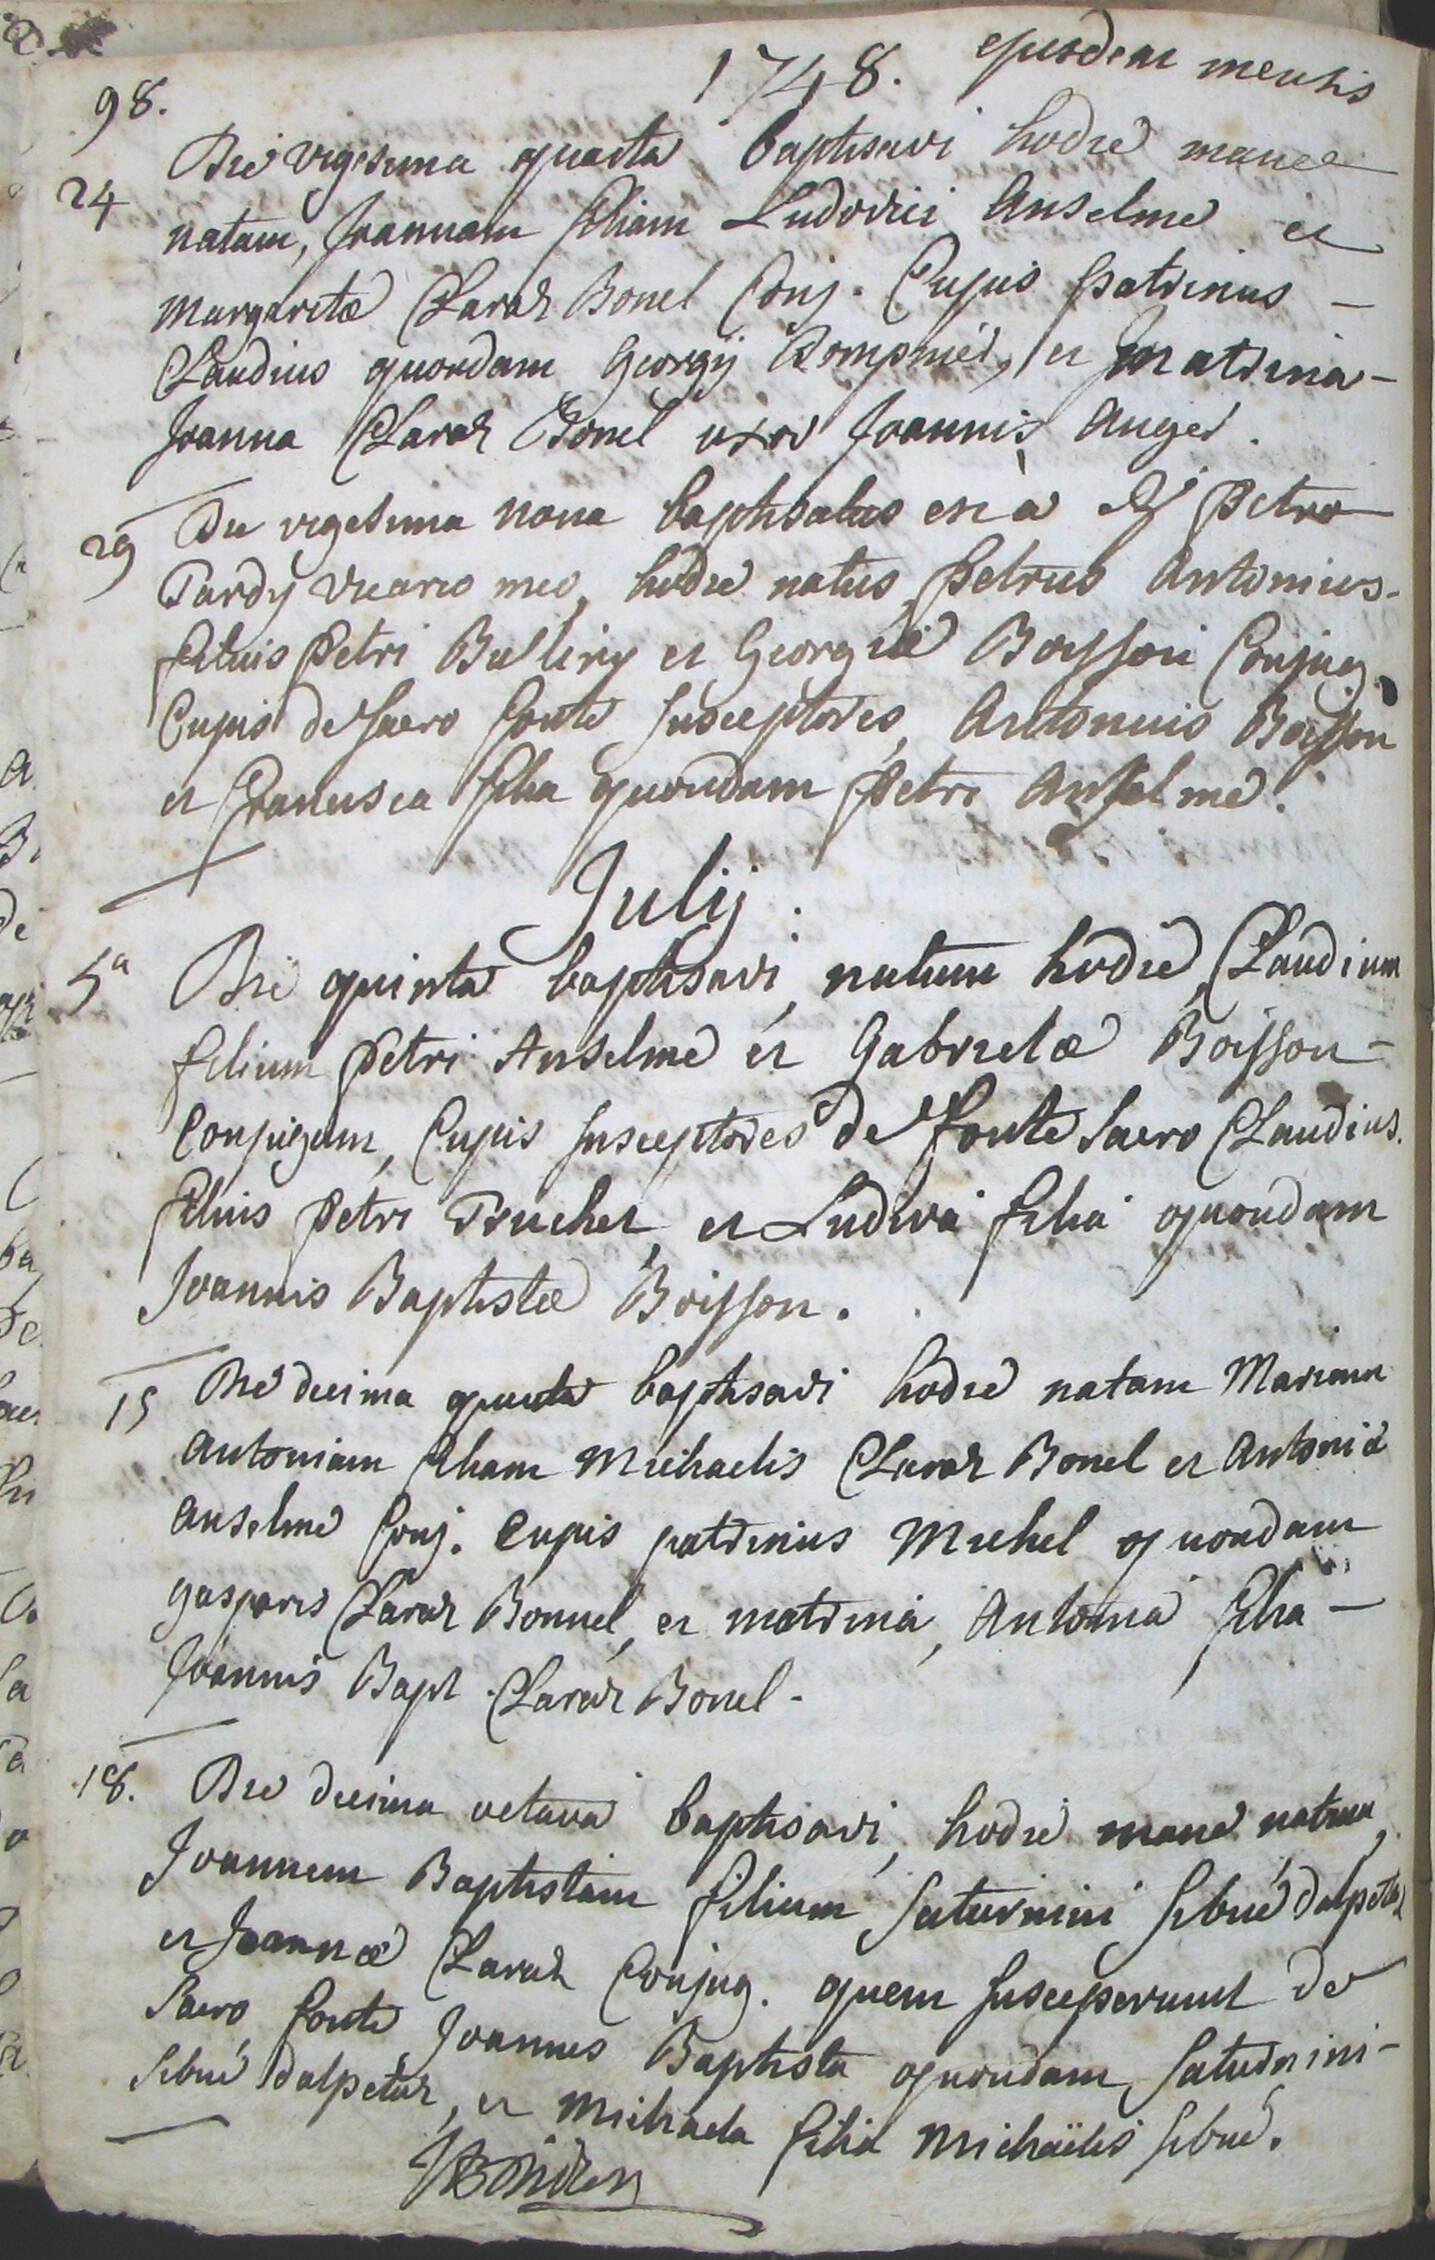 98. 1748. ejusdem mensis
24 Die vigesima quarta baptisavi hodie mane
natam, Joannam filiam Ludovici Anselme et
Margaritæ Claraz Bonel Conj. Cujus patrinus –
Claudius quondam Georgij Rompnier, et matrina –
Joanna Claraz Bonel uxor Joannis Anger.
29 Die vigesima nona baptisatus est à Petro
Tardy vicario meo, hodie natus, Petrus Antonius.
filius Petri Bulliny et Georgiæ Boisson Conjug.
Cujus de sacro fonte susceptores, Antonius Boisson
et Francisca filia quondam Petri Anselme.
Julij.
5a Die quinta baptisavi, natum hodie, Claudium
filium Petri Anselme et Gabrielæ Boisson –
Conjugum, Cujus susceptores de fonte sacro Claudius.
filius Petri Truchet et Ludiva filia quondam
Joannis Baptistæ Boisson.
15 Die decima quinta baptisavi hodie natam Mariam
Antoniam filiam Michaelis Claraz Bonel et Antoniæ
Anselme Conj. Cujus patrinus Michel quondam
gasparis Claraz Bonnel, et matrina, Antonia filia –
Joannis Bapt. Claraz Bonel.
18. Die decima octava baptisavi, hodie mane natum,
Joannem Baptistam filium Saturnini Sibué dalpetaz
et Joannæ Claraz Conjug. quem susceperunt de
Sacro fonte, Joannes Baptista quondam Saturnini –
Sibué dalpetaz, et Michaela filia Michaëlis Sibué.